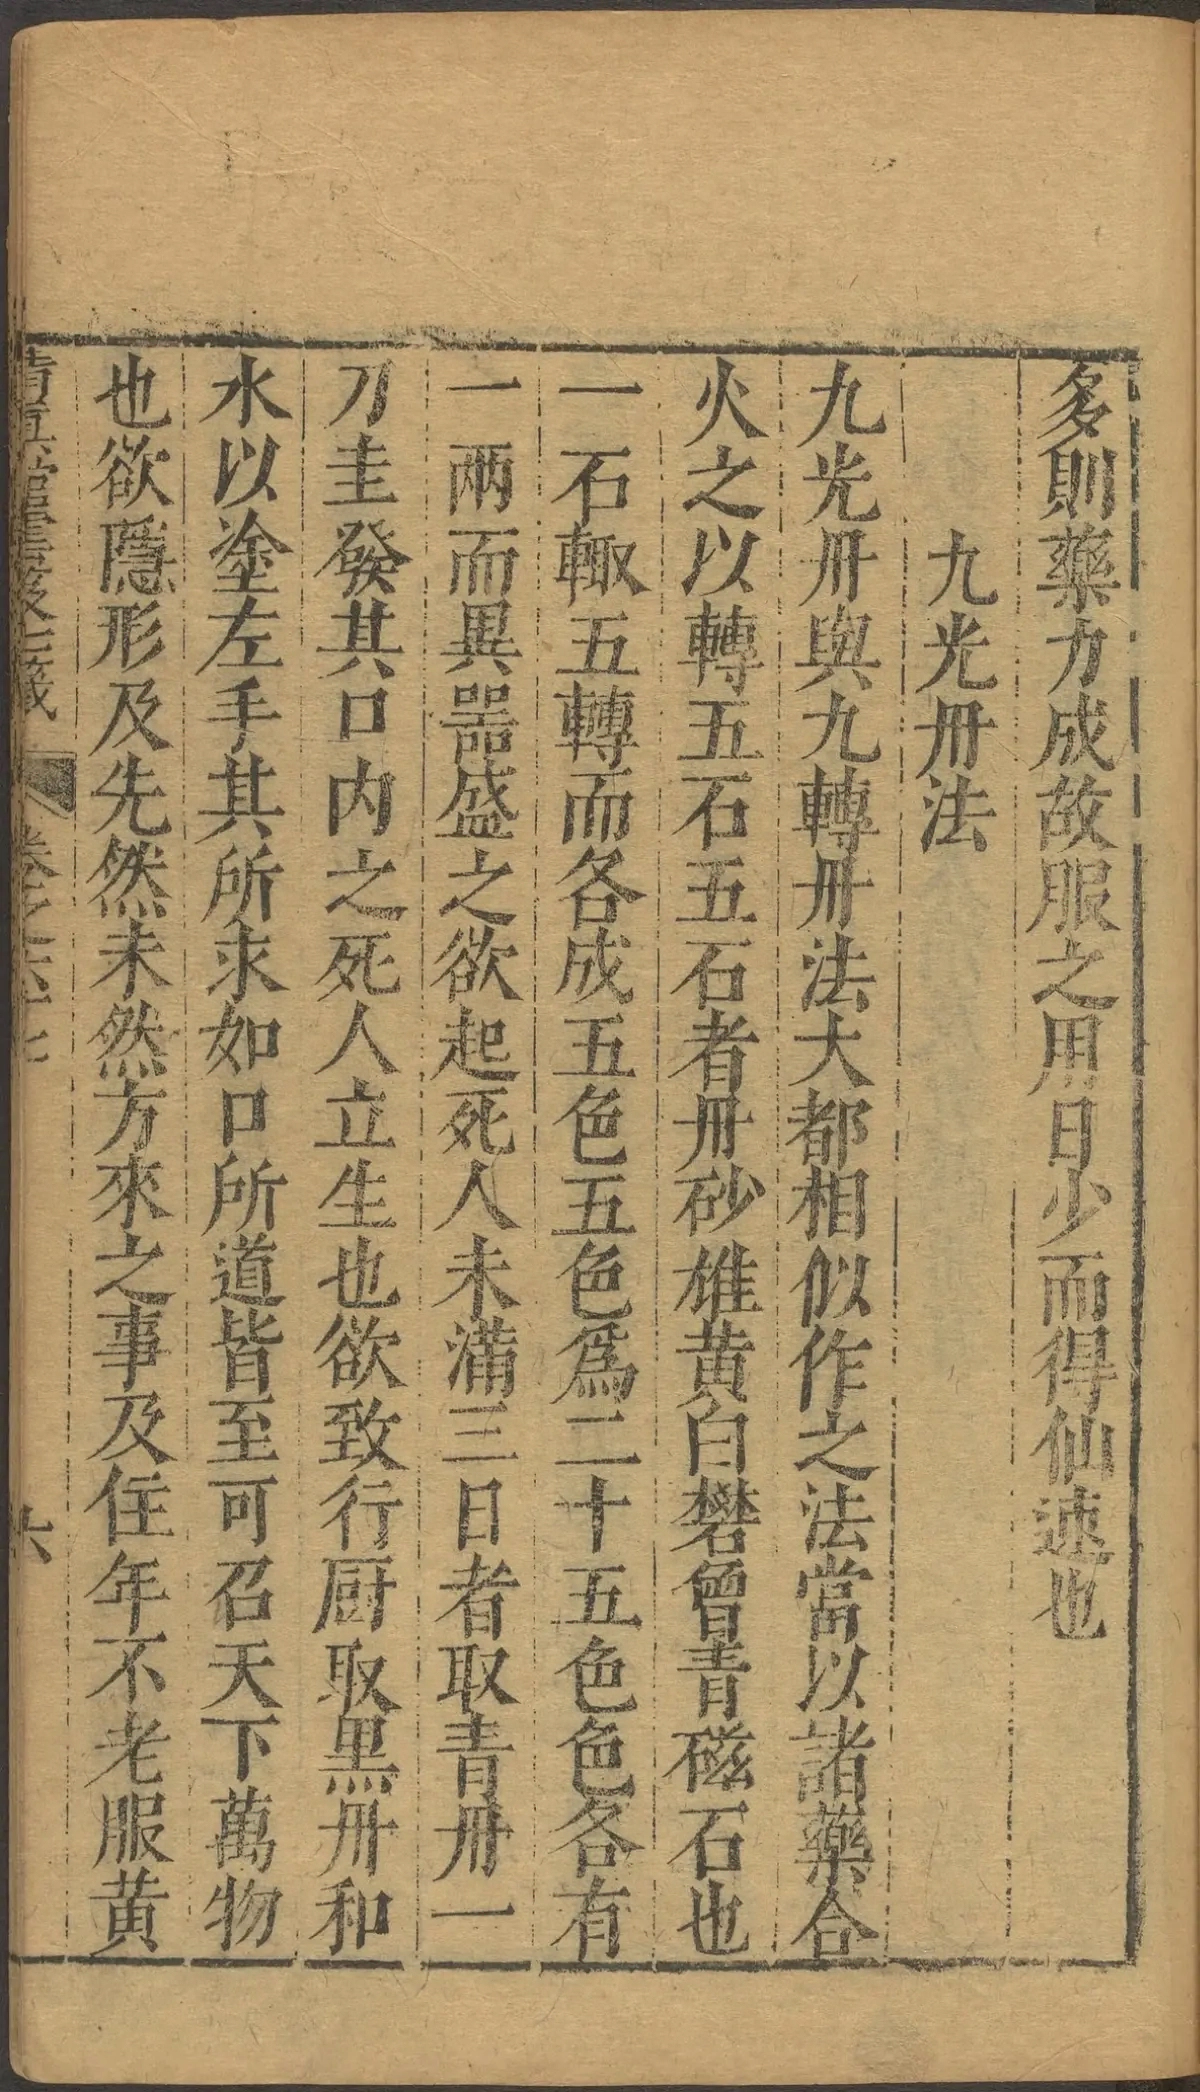 多則藥力成故服之用日少而得仙速也
九光丹法
九光丹與九轉丹法大都相似作之法當以諸藥合
火之以轉五石五石者丹砂雄黃白礬曾青磁石也
一石輙五轉而各成五色五色爲二十五色色各有
一兩而異噐盛之欲起死人未滿三日者取青丹一
刀圭發其口内之死人立生也欲致行厨取黒丹和
水以塗左手其所求如口所道皆至可召天下萬物
也欲隱形及先然未然方來之事及住年不老服黃
清真館雲笈七籤 卷之六十七 六